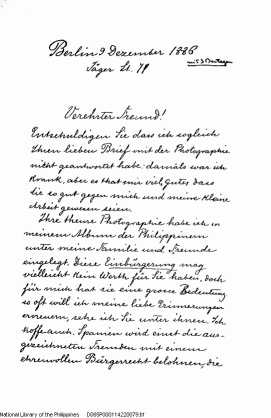 Berlin 9 Dezember 1886
Jäger St. 71
mit 3 Beilagen
Verehrter Freund!
Entschuldigen Sie dass ich sogleich
Ihren lieben Brief mit der Photographie
nicht geantwortet habe: damals war ich
Krank, aber es that mir viel Gutes dass
Sie so gut gegen mich und meine kleine
Arbeit gewesen seien.
Ihre theure Photographie habe ich in
meinem Album der Philippinern
unter meine Familie und Freunde
eingelegt. Diese Einbürgerung mag
vielleicht kein Werth für Sie haben, doch
für mich hat sie eine grosse Bedeutung
so oft will ich meine liebe Erinnerungen
erneuern, sehe ich Sie unter ihnen. Ich
hoffe auch. Spanien wird einst die aus-
gezeichneten Fremden mit einem
ehrenvollen Bürgerrecht belohnen, die
National Library of the Philippines D085P000114220079.tif